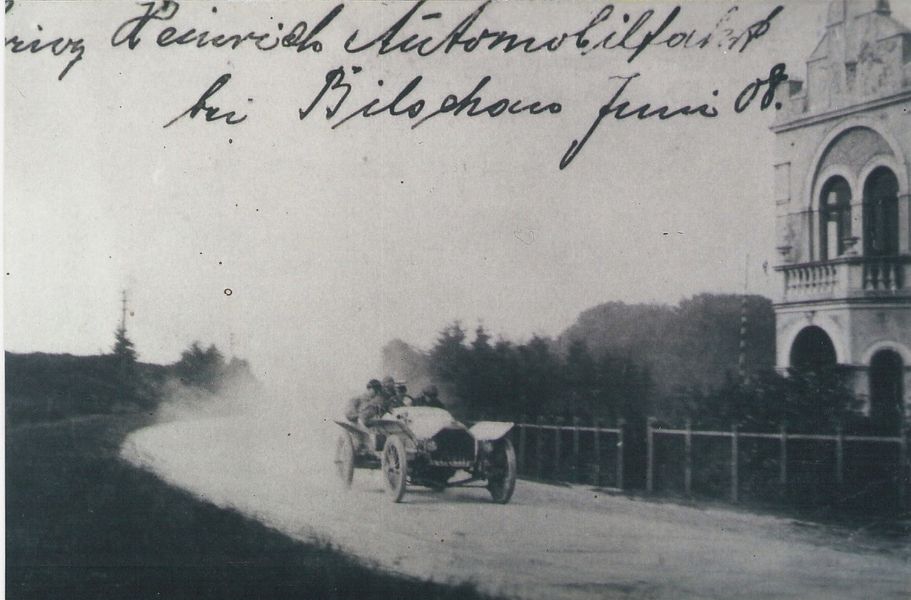 rinz Heinrich Automobilfahrt
bei Bilschau Juni 08.